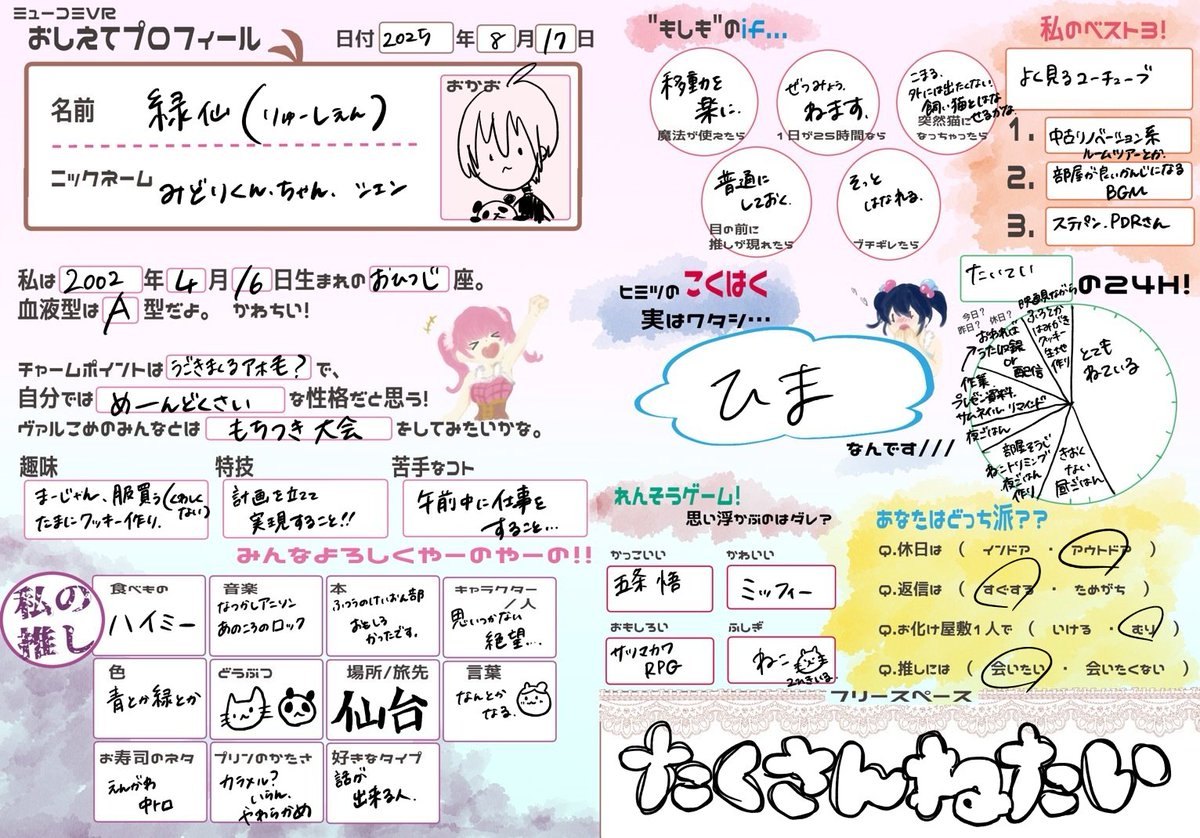 ミューコミVR
おしえてプロフィール
日付 2025 年 8 月 17 日
名前 緑仙(りゅーしぇん)
おかお
ニックネーム みどりくん、ちゃん、シェン
私は 2002 年 4 月 16 日生まれの おひつじ 座。
血液型は A 型だよ。 かわちい!
チャームポイントは うごきまくるアホ毛? で、
自分では めーんどくさい な性格だと思う!
ヴァルこめのみんなとは もちつき大会 をしてみたいかな。
趣味
まーじゃん、服買う(くわしくない)
たまにクッキー作り.
特技
計画を立てて
実現すること!!
苦手なコト
午前中に仕事を
すること…
みんなよろしくやーのやーの!!
私の推し
食べもの
ハイミー
音楽
なつかしアニソン
あのころのロック
本
ふつうのけいおん部
おもしろ
かったです。
キャラクター/人
思いつかない
絶望…
色
青とか緑とか
どうぶつ
場所/旅先
仙台
言葉
なんとか
なる.
お寿司のネタ
えんがわ
中トロ
プリンのかたさ
カラメル?
いらん、
やわらかめ
好きなタイプ
話が
出来る人.
"もしも"のif...
移動を
楽に.
魔法が使えたら
ぜつみょう.
ねます.
1日が25時間なら
こまる.
外には出たくない.
飼い猫とはな
せるかな.
突然猫に
なっちゃったら
普通に
しておく.
目の前に
推しが現れたら
そっと
はなれる.
ブチギレたら
私のベスト3!
よく見るユーチューブ
1. 中古リノベーション系
ルームツアーとか.
2. 部屋が良いかんじになる
BGM
3. ステパン、PDRさん
ヒミツのこくはく
実はワタシ…
ひま
なんです///
たいてい の24H!
とても
ねている
きおく
ない
昼ごはん
部屋そうじ
ねこトリミング
夜ごはん
作り
作業.
プレゼン資料.
サムネイル リマインド
夜ごはん
今日?
昨日?
休日?
おわれば
うたは録
or
配信
映画見ながら
ふろとか
はみがき
クッキー
生地
作り
れんそうゲーム!
思い浮かぶのはダレ?
かっこいい
五条悟
かわいい
ミッフィー
おもしろい
ザツマカワ
RPG
ふしぎ
ねこ
2ひきいる.
あなたはどっち派??
Q.休日は ( インドア ・ アウトドア )
Q.返信は ( すぐする ・ ためがち )
Q.お化け屋敷1人で ( いける ・ むり )
Q.推しには ( 会いたい ・ 会いたくない )
フリースペース
たくさんねたい